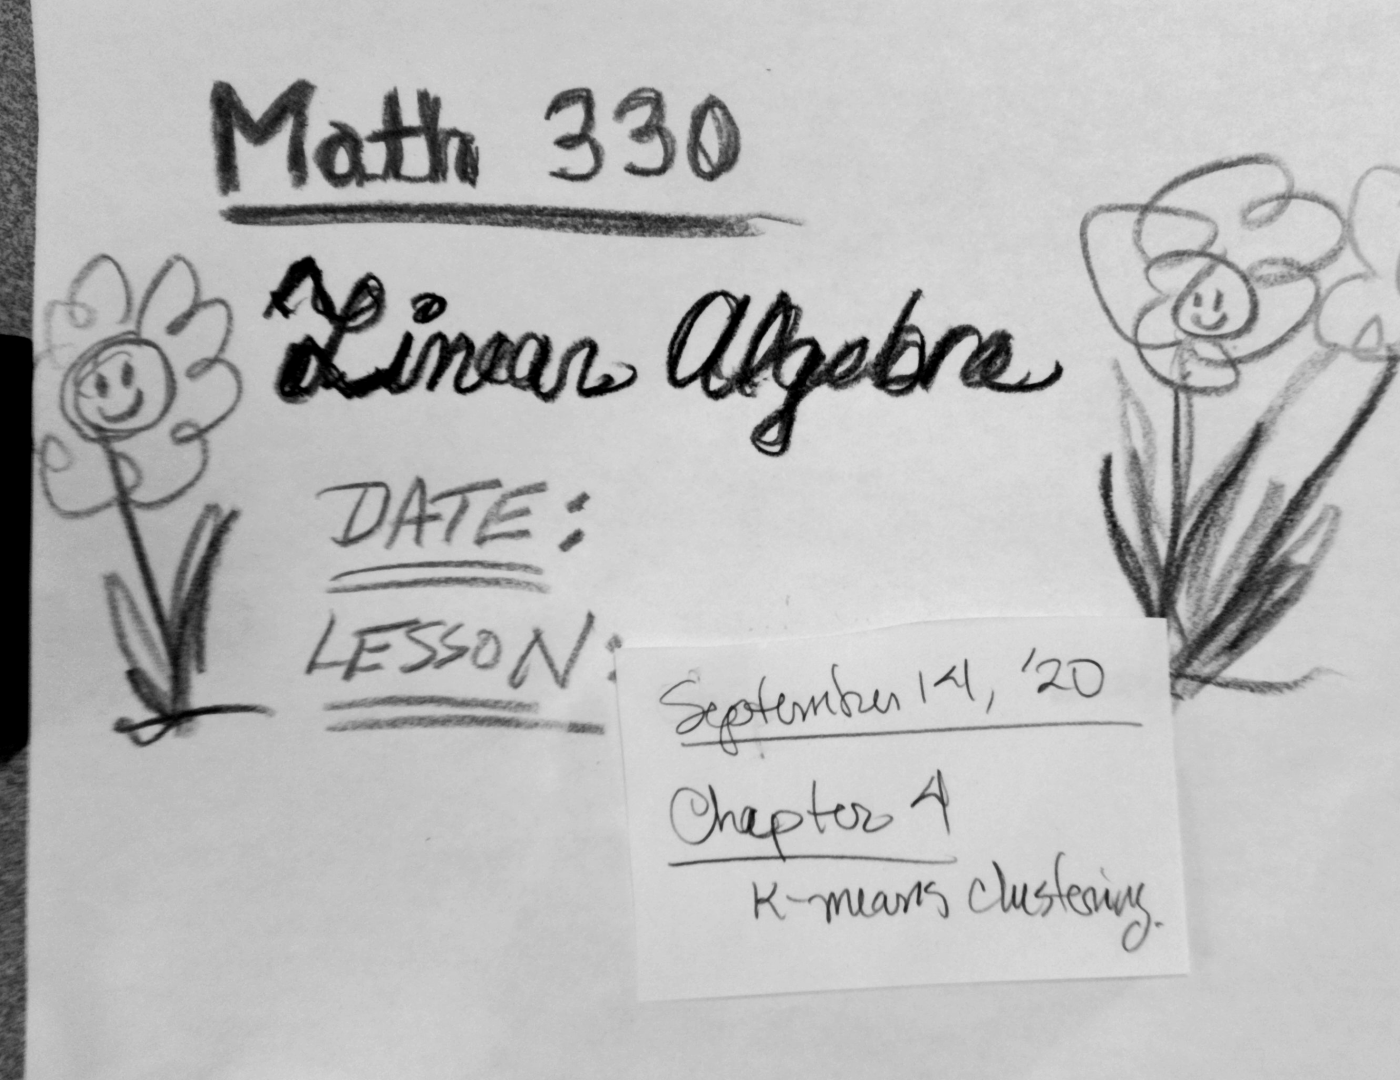 Math 330
Linear Algebra
DATE:
LESSON:
September 14, '20
Chapter 4
K-means clustering.